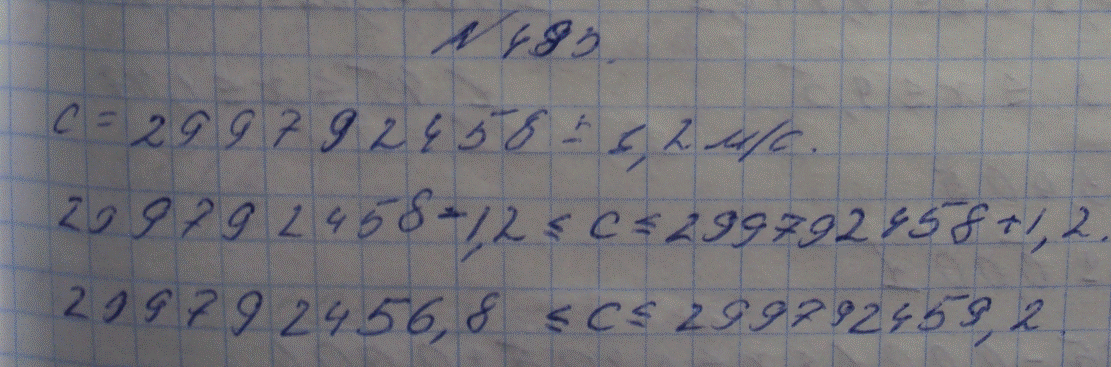 № 493.
c = 299792458 ± 1,2 м/с.
299792458-1,2 ≤ c ≤ 299792458+1,2.
299792456,8 ≤ c ≤ 299792459,2.